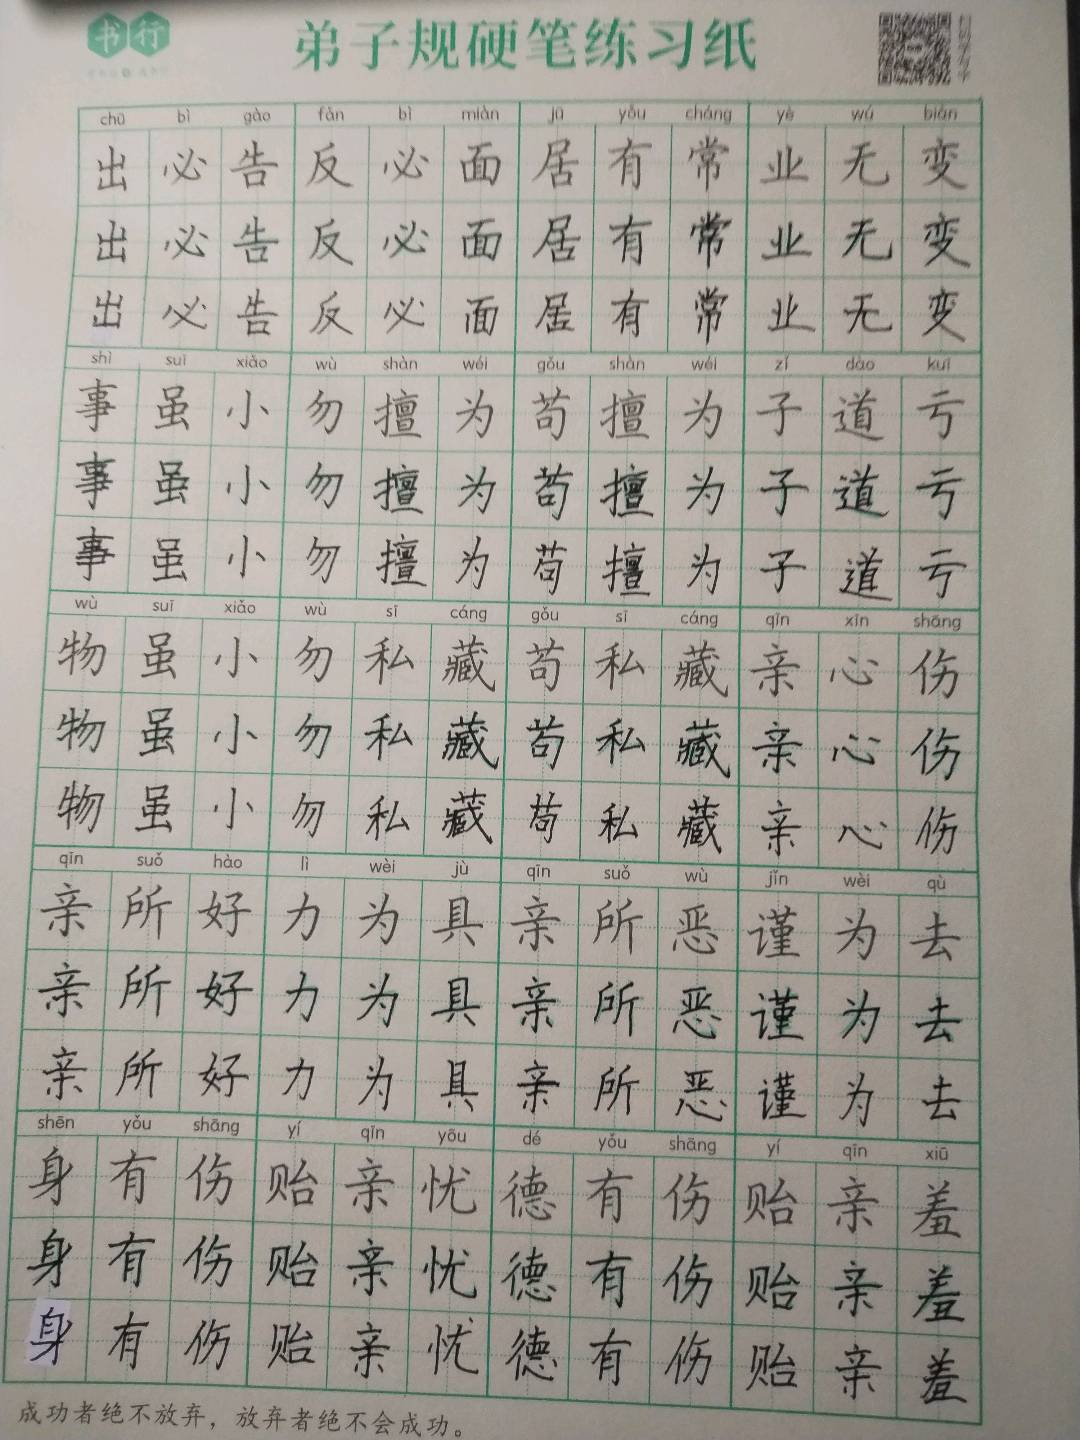 书行
弟子规硬笔练习纸
chū bì gào fǎn bì miàn jū yǒu cháng yè wú biàn
出必告反必面居有常业无变
出必告反必面居有常业无变
出必告反必面居有常业无变
shì suī xiǎo wù shàn wéi gǒu shàn wéi zǐ dào kuī
事虽小勿擅为苟擅为子道亏
事虽小勿擅为苟擅为子道亏
事虽小勿擅为苟擅为子道亏
wù suī xiǎo wù sī cáng gǒu sī cáng qīn xīn shāng
物虽小勿私藏苟私藏亲心伤
物虽小勿私藏苟私藏亲心伤
物虽小勿私藏苟私藏亲心伤
qīn suǒ hào lì wèi jù qīn suǒ wù jǐn wèi qù
亲所好力为具亲所恶谨为去
亲所好力为具亲所恶谨为去
亲所好力为具亲所恶谨为去
shēn yǒu shāng yí qīn yōu dé yǒu shāng yí qīn xiū
身有伤贻亲忧德有伤贻亲羞
身有伤贻亲忧德有伤贻亲羞
身有伤贻亲忧德有伤贻亲羞
成功者绝不放弃，放弃者绝不会成功。